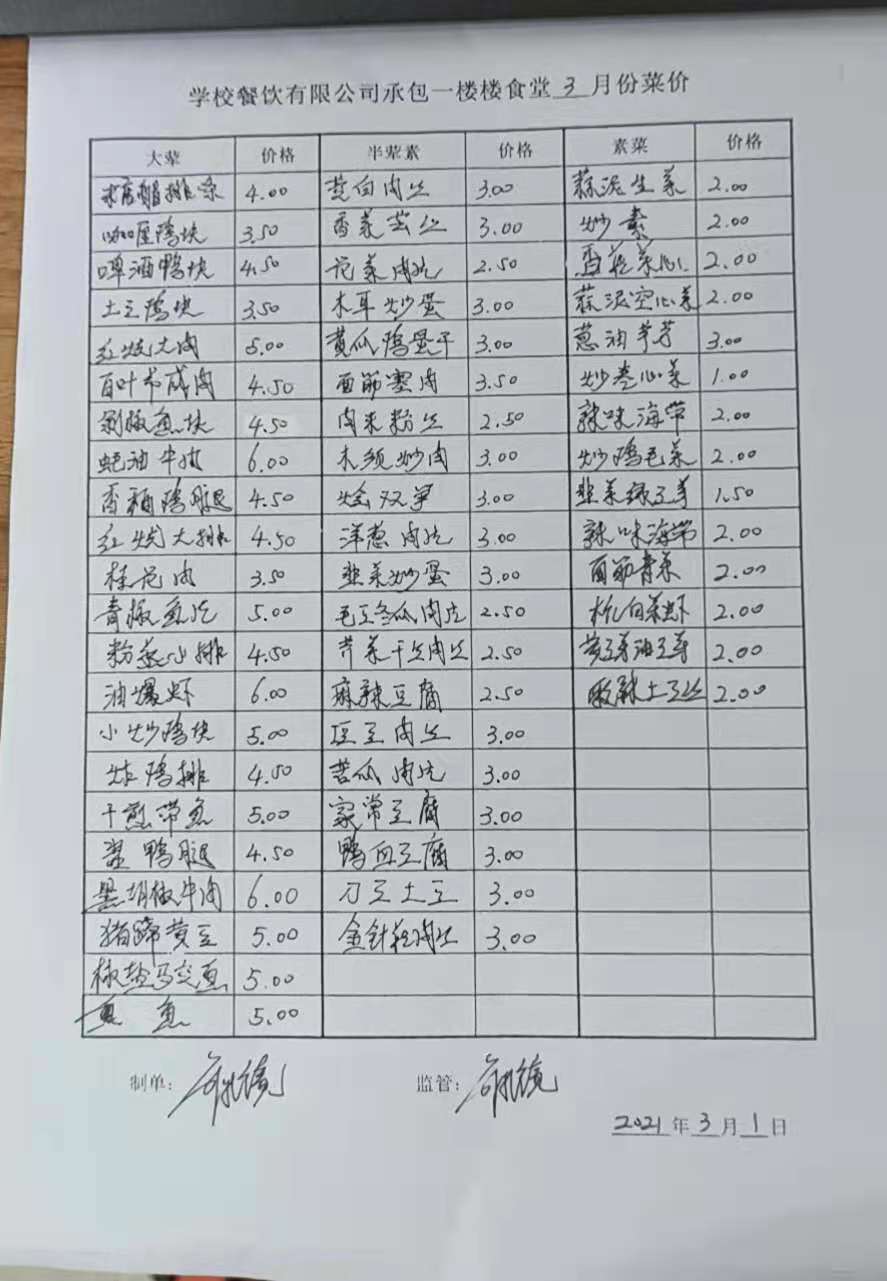 学校餐饮有限公司承包一楼楼食堂 3 月份菜价
大荤 价格 半荤素 价格 素菜 价格
4.00 茭白肉丝 3.00 蒜泥生菜 2.00
咖喱鸡块 3.50 香菜芸丝 3.00 炒素 2.00
啤酒鸭块 4.50 花菜肉片 2.50 香菇菜心 2.00
土豆鸡块 3.50 木耳炒蛋 3.00 蒜泥空心菜 2.00
红烧大肉 5.00 黄瓜鸡蛋干 3.00 葱油芋艿 3.00
百叶结咸肉 4.50 面筋塞肉 3.50 炒卷心菜 1.00
剁椒鱼块 4.50 肉末粉丝 2.50 辣味海带 2.00
蚝油牛肉 6.00 木须炒肉 3.00 炒鸡毛菜 2.00
香酥鸡腿 4.50 烩双笋 3.00 韭菜绿豆芽 1.50
红烧大排 4.50 洋葱肉片 3.00 辣味海带 2.00
桂花肉 3.50 韭菜炒蛋 3.00 面筋青菜 2.00
青椒鱼片 5.00 毛豆冬瓜肉片 2.50 白菜虾 2.00
粉蒸小排 4.50 芹菜干丝肉丝 2.50 黄豆芽油豆芽 2.00
油爆虾 6.00 麻辣豆腐 2.50 酸辣土豆丝 2.00
小炒鸡块 5.00 豇豆肉丝 3.00
炸鸡排 4.50 苦瓜肉片 3.00
干煎带鱼 5.00 家常豆腐 3.00
鸭腿 4.50 鸭血豆腐 3.00
黑胡椒牛肉 6.00 刀豆土豆 3.00
猪蹄黄豆 5.00 金针菇肉丝 3.00
椒盐马交鱼 5.00
鱼 5.00
制单： 监管：
2021 年 3 月 1 日